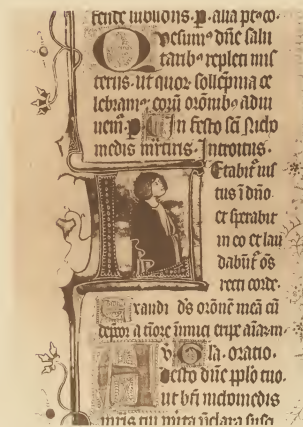 tende iublionis. p. alia pt9co.
Quesum9 dñe salu
tarib9 repleti mis
teriis. ut quor sollēpnia ce
lebram9 eorū orōnib9 adiu
uem̄. p. In festo scī Nicho
medis mīris. Introitus.
Letabit̄ ius
tus ī dño
et sperabit
in eo et lau
dabūt oēs
recti corde.
Exaudi ds orōnē meā cū
a tīore inimici eripe aīam.
oratio.
Adesto dñe pplo tuo.
ut bīi nichomedis